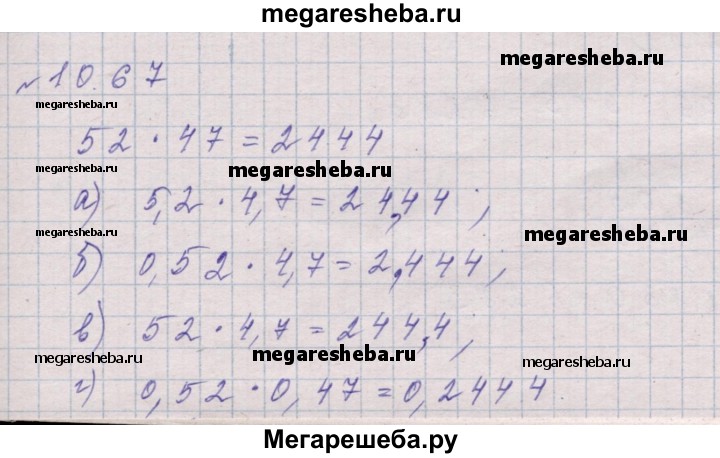 megaresheba.ru
megaresheba.ru
№ 10.67
megaresheba.ru
52 · 47 = 2444
megaresheba.ru
megaresheba.ru
а) 5,2 · 4,7 = 24,44 ;
megaresheba.ru
megaresheba.ru
б) 0,52 · 4,7 = 2,444 ;
в) 52 · 4,7 = 244,4 ;
megaresheba.ru
megaresheba.ru
megaresheba.ru
г) 0,52 · 0,47 = 0,2444
Мегарешеба.ру